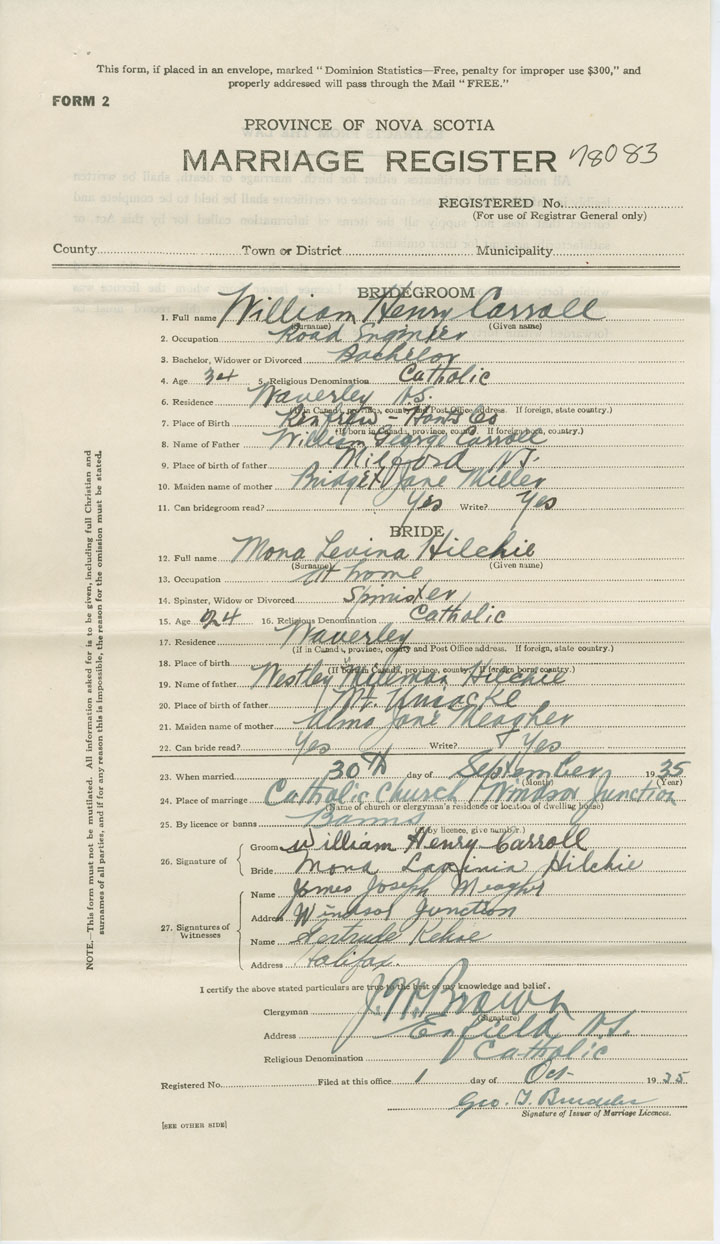 This form, if placed in an envelope, marked "Dominion Statistics—Free, penalty for improper use $300," and
properly addressed will pass through the Mail "FREE."
FORM 2
PROVINCE OF NOVA SCOTIA
MARRIAGE REGISTER 78083
REGISTERED No.
(For use of Registrar General only)
County Town or District Municipality
BRIDEGROOM
1. Full name William Henry Carroll
(Surname) (Given name)
2. Occupation Road Engineer
3. Bachelor, Widower or Divorced Bachelor
4. Age 34 5. Religious Denomination Catholic
6. Residence Waverley N.S.
(If in Canada, province, county and Post Office address. If foreign, state country.)
7. Place of Birth Renfrew - Hants Co
(If born in Canada, province, county. If foreign born, country)
8. Name of Father William George Carroll
9. Place of birth of father Milford
10. Maiden name of mother Bridget Jane Miller
11. Can bridegroom read? Yes Write? Yes
BRIDE
12. Full name Mona Levina Hilchie
(Surname) (Given name)
13. Occupation At home
14. Spinster, Widow or Divorced Spinister
15. Age 24 16. Religious Denomination Catholic
17. Residence Waverley
(If in Canada, province, county and Post Office address. If foreign, state country.)
18. Place of birth
(If born in Canada, province, county. If foreign born, country)
19. Name of father Westley Hilchie
20. Place of birth of father Mt. Uniacke
21. Maiden name of mother Alma Jane Meagher
22. Can bride read? Yes Write? Yes
23. When married 30th day of September 1935
(Month) (Year)
24. Place of marriage Catholic Church Windsor Junction
(Name of church or clergyman's residence or location of dwelling house)
25. By licence or banns Banns
(If by licence, give number.)
26. Signature of Groom William Henry Carroll
Bride Mona Lavinia Hilchie
27. Signatures of Witnesses
Name James Joseph Meagher
Address Windsor Junction
Name Gertrude Kehoe
Address Halifax.
I certify the above stated particulars are true to the best of my knowledge and belief.
Clergyman J. W. Brown
(Signature)
Address Enfield N.S.
Religious Denomination Catholic
Registered No. Filed at this office 1 day of Oct- 1935
Geo. T.
Signature of Issuer of Marriage Licences.
[SEE OTHER SIDE]
NOTE.—This form must not be mutilated. All information asked for is to be given, including full Christian and
surnames of all parties, and if for any reason this is impossible, the reason for the omission must be stated.